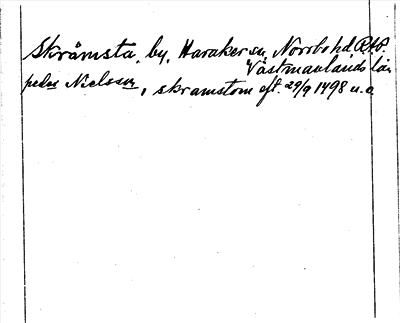 Skråmsta, by, Haraker sn, Norrbo hd
Västmanlands län
peder Nielsson, skramstom eft. 29/9 1498 u.o.